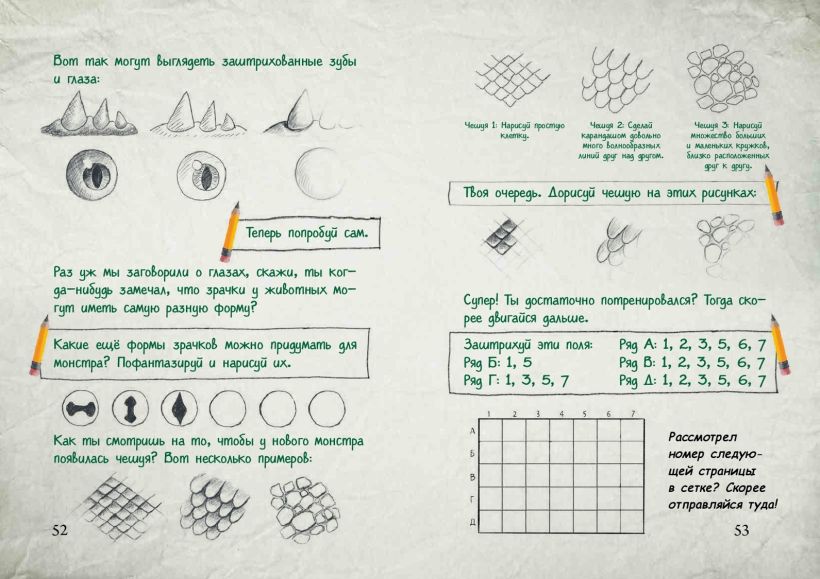 Вот так могут выглядеть заштрихованные зубы
и глаза:
Теперь попробуй сам.
Раз уж мы заговорили о глазах, скажи, ты ког-
да-нибудь замечал, что зрачки у животных мо-
гут иметь самую разную форму?
Какие ещё формы зрачков можно придумать для
монстра? Пофантазируй и нарисуй их.
Как ты смотришь на то, чтобы у нового монстра
появилась чешуя? Вот несколько примеров:
52
Чешуя 1: Нарисуй простую
клетку.
Чешуя 2: Сделай
карандашом довольно
много волнообразных
линий друг над другом.
Чешуя 3: Нарисуй
множество больших
и маленьких кружков,
близко расположенных
друг к другу.
Твоя очередь. Дорисуй чешую на этих рисунках:
Супер! Ты достаточно потренировался? Тогда ско-
рее двигайся дальше.
Заштрихуй эти поля:
Ряд Б: 1, 5
Ряд Г: 1, 3, 5, 7
Ряд А: 1, 2, 3, 5, 6, 7
Ряд В: 1, 2, 3, 5, 6, 7
Ряд Д: 1, 2, 3, 5, 6, 7
1 2 3 4 5 6 7
А
Б
В
Г
Д
Рассмотрел
номер следую-
щей страницы
в сетке? Скорее
отправляйся туда!
53